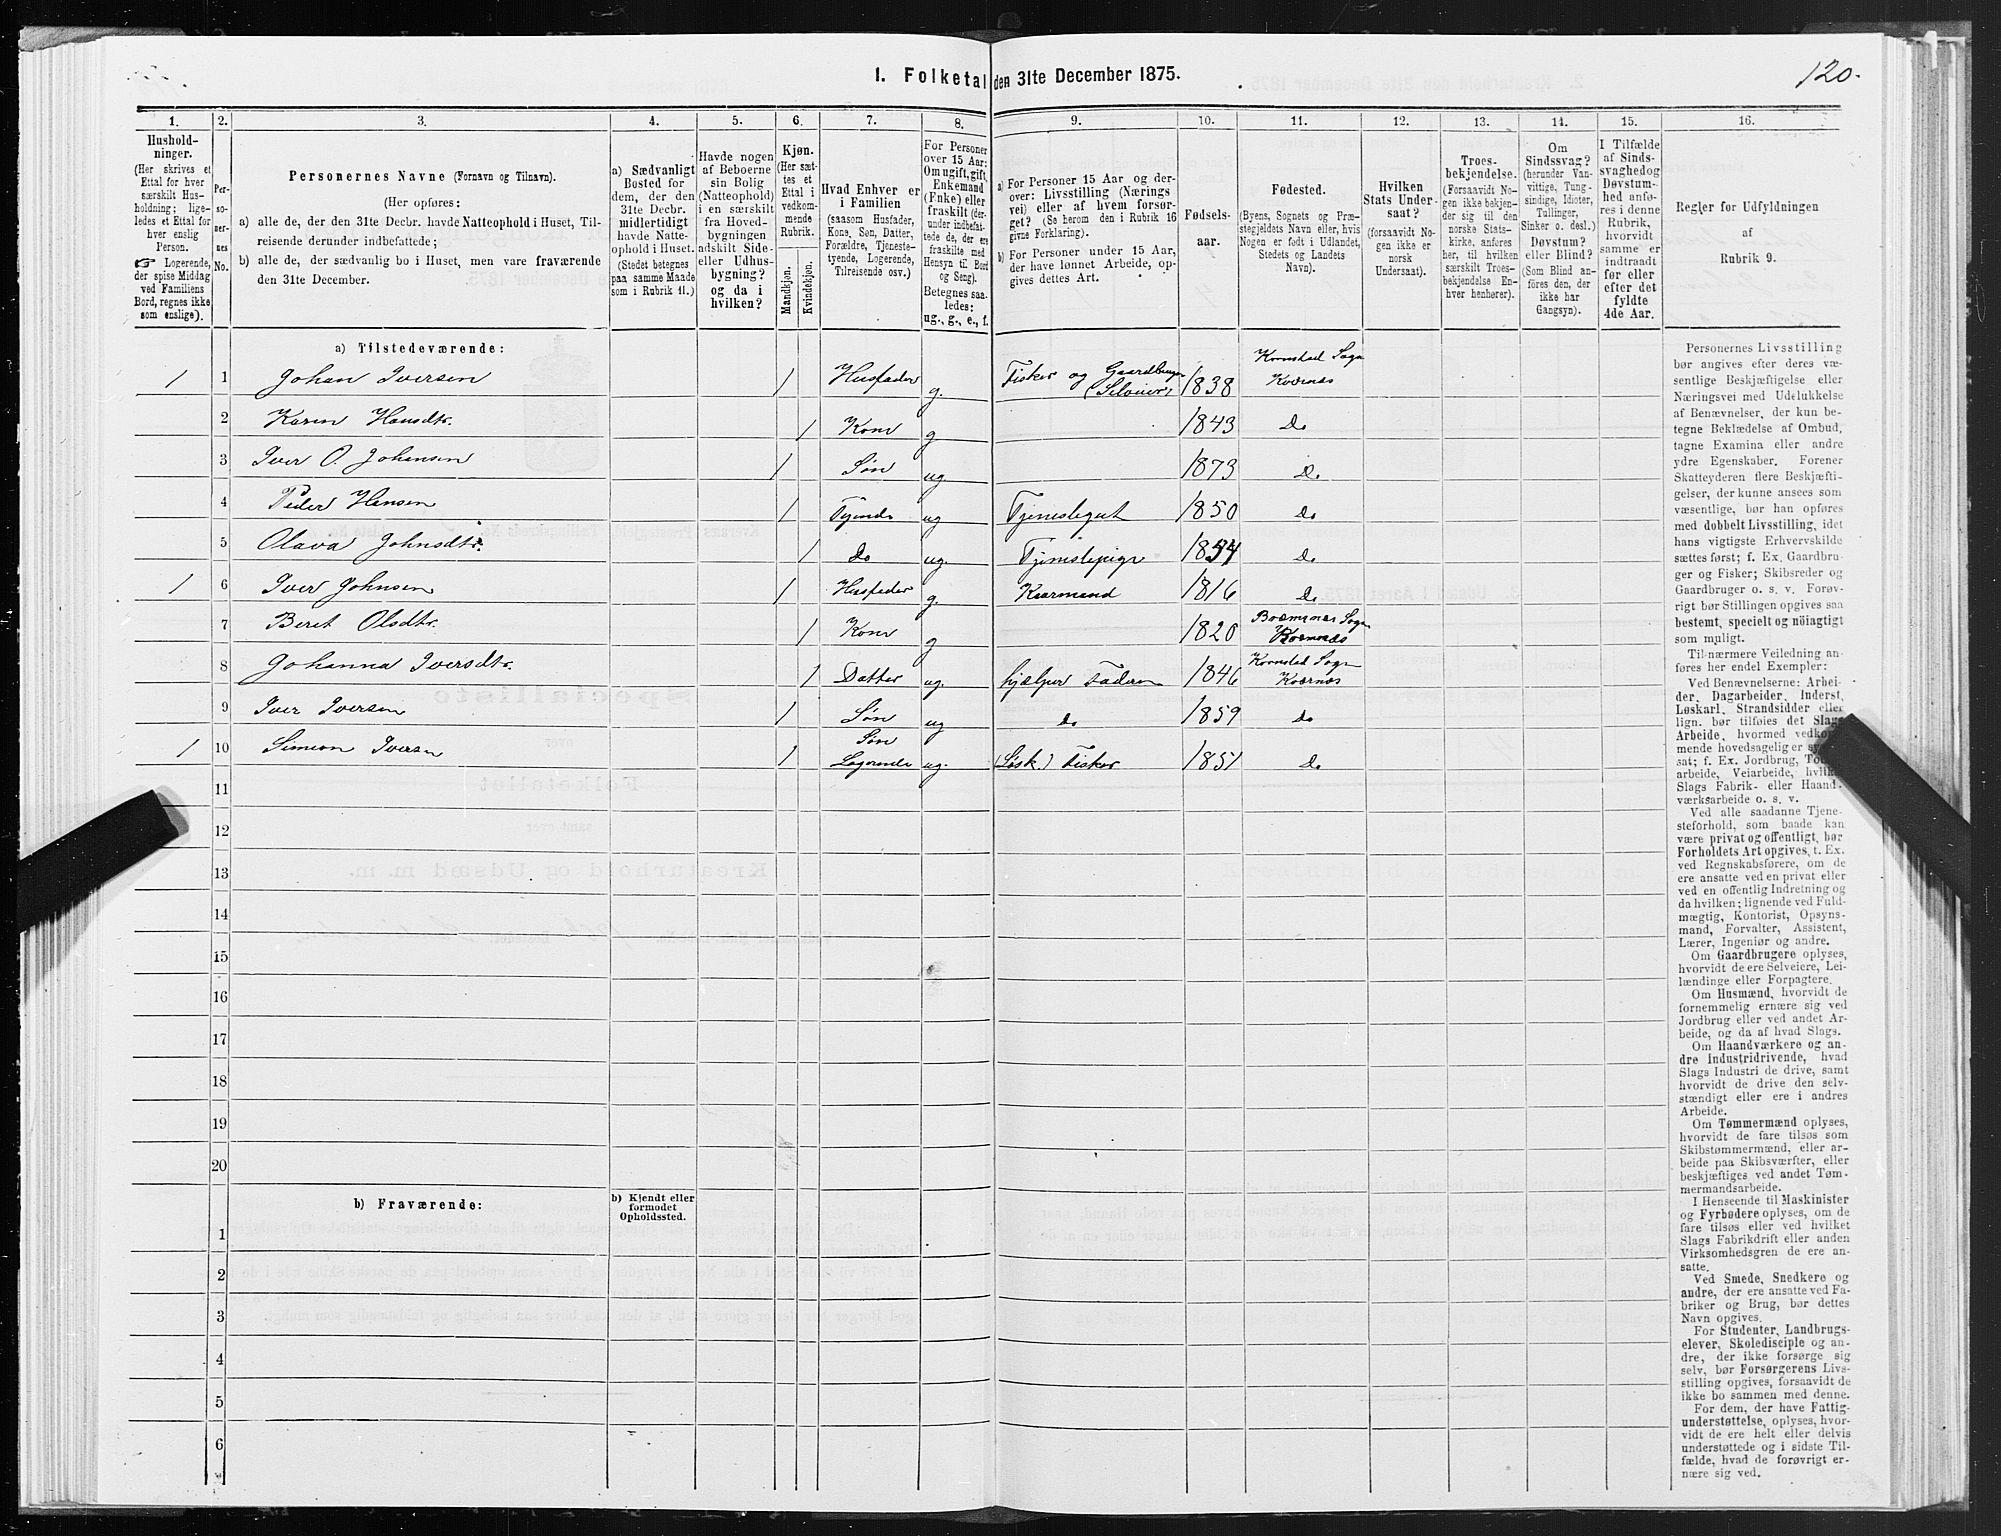 1. Folketal den 31te December 1875.
120.
1. 2. 3. 4. 5. 6. 7. 8. 9. 10. 11. 12. 13. 14. 15. 16.
Hushold-
ninger.
(Her skrives et
Ettal for hver
særskilt Hus-
holdning; lige-
ledes et Ettal for
hver enslig
Person.
☞ Logerende,
der spise Middag
ved Familiens
Bord, regnes ikke
som enslige).
Per-
so-
ner-
nes
No.
Personernes Navne (Fornavn og Tilnavn).
(Her opføres:
a) alle de, der den 31te Decbr. havde Natteophold i Huset, Til-
reisende derunder indbefattede;
b) alle de, der sædvanlig bo i Huset, men vare fraværende
den 31te December.
a) Sædvanligt
Bosted for
dem, der den
31te Decbr.
midlertidigt
havde Natte-
ophold i Huset.
(Stedet betegnes
paa samme Maade
som i Rubrik 11.)
Havde nogen
af Beboerne
sin Bolig
(Natteophold)
i en særskilt
fra Hoved-
bygningen
adskilt Side-
eller Udhus-
bygning?
og da i
hvilken?
Kjøn.
(Her sæt-
tes et
Ettal i
vedkom-
mende
Rubrik.
Mandkjøn.
Kvindekjøn.
Hvad Enhver er
i Familien
(saasom Husfader,
Kone, Søn, Datter,
Forældre, Tjeneste-
tyende, Logerende,
Tilreisende osv.)
For Personer
over 15 Aar:
Om ugift, gift,
Enkemand
(Enke) eller
fraskilt (der-
under indbefat-
tede de, der ere
fraskilte med
Hensyn til Bord
og Seng).
Betegnes saa-
ledes:
ug., g., e., f.
a) For Personer 15 Aar og der-
over: Livsstilling (Nærings
vei) eller af hvem forsør-
get? (Se herom den i Rubrik 16
givne Forklaring).
b) For Personer under 15 Aar,
der have lønnet Arbeide, op-
gives dettes Art.
Fødsels-
aar.
Fødested.
(Byens, Sognets og Præ-
stegjeldets Navn eller, hvis
Nogen er født i Udlandet,
Stedets og Landets
Navn).
Hvilken
Stats Under-
saat?
(forsaavidt No-
gen ikke er
norsk
Undersaat).
Troes-
bekjendelse.
(Forsaavidt No-
gen ikke bekjen-
der sig til den
norske Stats-
kirke, anføres
her, til hvilken
særskilt Troes-
bekjendelse En-
hver henhører).
Om
Sindssvag?
(herunder Van-
vittige, Tung-
sindige, Idioter,
Tullinger,
Sinker o. desl.)
Døvstum?
eller Blind?
(Som Blind an-
føres den, der
ikke har
Gangsyn).
I Tilfælde
af Sinds-
svaghed og
Døvstum-
hed anfø-
res i denne
Rubrik,
hvorvidt
samme er
indtraadt
før eller
efter det
fyldte
4de Aar.
Regler for Udfyldningen
af
Rubrik 9.
a) Tilstedeværende:
1 1 Johan Iversen 1 Husfader g. Fisker og Gaardbruger (Selveier) 1838 Kornstad Sogn Kværnæs
2 Karen Hansdtr. 1 Kone g 1843 Do
3 Iver O. Johansen 1 Søn ug 1873 Do
4 Peder Hansen 1 Tyende ug Tjenestegut 1850 Do
5 Olava Johnsdtr. 1 Do ug. Tjenestepige 1854 Do
1 6 Iver Johnsen 1 Husfader g. Kaarmand 1816 Do
7 Beret Olsdtr. 1 Kone g 1820 Bræmsnæs Sogn Kværnæs
8 Johanna Iversdtr. 1 Datter ug. hjælper Faderen 1846 Kornstad Sogn Kværnæs
9 Iver Iversen 1 Søn ug do 1859 Do
1 10 Simeon Iversen 1 Søn Logerende ug. (Løsk.) Fisker 1851 Do
11
12
13
14
15
16
17
18
19
20
b) Fraværende:
b) Kjendt eller
formodet
Opholdssted.
1
2
3
4
5
6
Personernes Livsstilling
bør angives efter deres væ-
sentlige Beskjæftigelse eller
Næringsvei med Udelukkelse
af Benævnelser, der kun be-
tegne Beklædelse af Ombud,
tagne Examina eller andre
ydre Egenskaber. Forener
Skatteyderen flere Beskjæfti-
gelser, der kunne ansees som
væsentlige, bør han opføres
med dobbelt Livsstilling, idet
hans vigtigste Erhvervskilde
sættes først; f. Ex. Gaardbru-
ger og Fisker; Skibsreder og
Gaardbruger o. s. v. Forøv-
rigt bør Stillingen opgives saa
bestemt, specielt og nöiagtigt
som muligt.
Til nærmere Veiledning an-
føres her endel Exempler:
Ved Benævnelserne: Arbei-
der, Dagarbeider, Inderst,
Løskarl, Strandsidder eller
lign. bør tilføies det Slags
Arbeide, hvormed vedkom-
mende hovedsagelig er
sat; f. Ex. Jordbrug,
arbeide, Veiarbeide, hvilket
Slags Fabrik- eller Haand-
værksarbeide o. s. v.
Ved alle saadanne Tjene-
steforhold, som baade kan
være privat og offentligt, bør
Forholdets Art opgives, t. Ex.
ved Regnskabsførere, om de
ere ansatte ved en privat eller
ved en offentlig Indretning og
da hvilken; lignende ved Fuld-
mægtig, Kontorist, Opsyns-
mand, Forvalter, Assistent,
Lærer, Ingeniør og andre.
Om Gaardbrugere oplyses,
hvorvidt de ere Selveiere, Lei-
lændinge eller Forpagtere.
Om Husmænd, hvorvidt de
fornemmelig ernære sig ved
Jordbrug eller ved andet Ar-
beide, og da af hvad Slags.
Om Haandværkere og an-
dre Industridrivende, hvad
Slags Industri de drive, samt
hvorvidt de drive den selv-
stændigt eller ere i andres
Arbeide.
Om Tømmermænd oplyses,
hvorvidt de fare tilsøs som
Skibstømmermænd, eller ar-
beide paa Skibsværfter, eller
beskjæftiges ved andet Tøm-
mermandsarbeide.
I Henseende til Maskinister
og Fyrbødere oplyses, om de
fare tilsøs eller ved hvilket
Slags Fabrikdrift eller anden
Virksomhedsgren de ere an-
satte.
Ved Smede, Snedkere og
andre, der ere ansatte ved Fa-
briker og Brug, bør dettes
Navn opgives.
For Studenter, Landbrugs-
elever, Skoledisciple og an-
dre, der ikke forsørge sig
selv, bør Forsørgerens Livs-
stilling opgives, forsaavidt de
ikke bo sammen med denne.
For dem, der have Fattig-
understøttelse, oplyses, hvor-
vidt de ere helt eller delvis
understøttede og i sidste Til-
fælde, hvad de forøvrigt er-
nære sig ved.